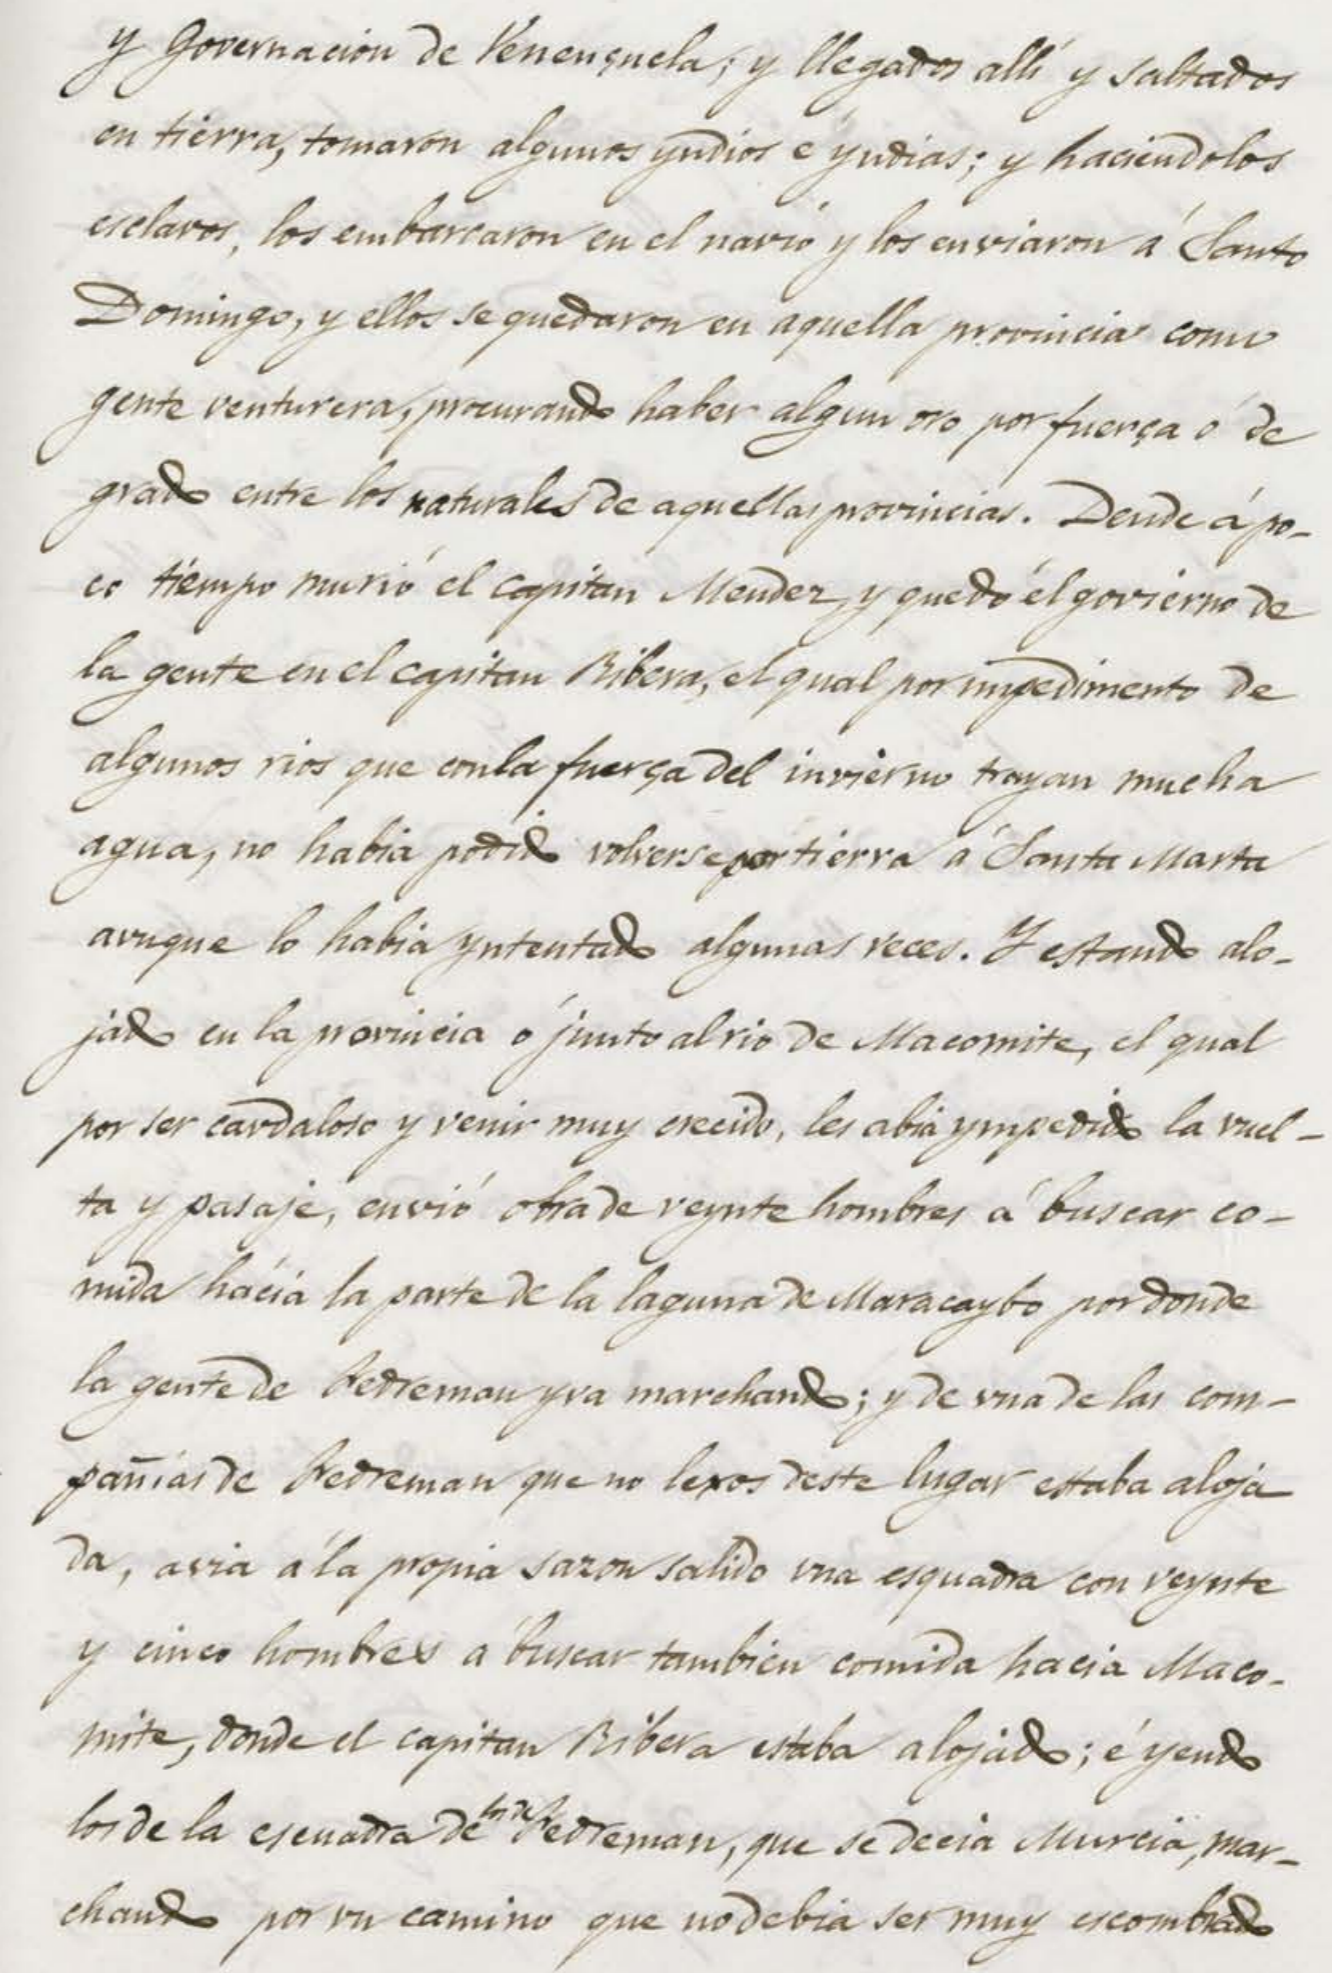 y Governacion de Venençuela; y llegados allí y saltados
en tierra, tomaron algunos yndios e yndias; y haciendolos
esclavos, los embarcaron en el navio y los enviaron á Santo
Domingo, y ellos se quedaron en aquella provincia como
gente venturera, procurando haber algun oro por fuerça ó de
grado entre los naturales de aquellas provincias. Dende á po-
co tiempo murió el capitan Mendez, y quedó el govierno de
la gente en el capitan Ribera, el qual por impedimento de
algunos rios que con la fuerça del invierno trayan mucha
agua, no habia podido volverse por tierra á Santa Marta
avnque lo habia yntentado algunas veces. Y estando alo-
jado en la provincia ó junto al rio de Macomite, el qual
por ser cavdaloso y venir muy crecido, les abia ympedido la vuel-
ta y pasaje, envió obra de veynte hombres á buscar co-
mida hácia la parte de la laguna de Maracaybo por donde
la gente de Fedreman yva marchando; y de vna de las com-
pañias de Fedreman que no lexos deste lugar estaba aloja
da, avia á la propia sazon salido vna esquadra con veynte
y cinco hombres á buscar tambien comida hacia Maco-
mite, donde el capitan Ribera estaba alojado; é yendo
los de la escuadra de los de Fedreman, que se decia Murcia, mar-
chando por vn camino que no debia ser muy escombrado